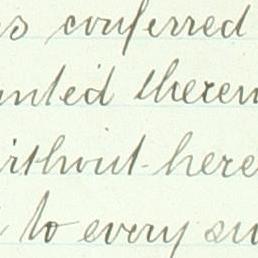 s conferred
nted therein
ithout here
to every su